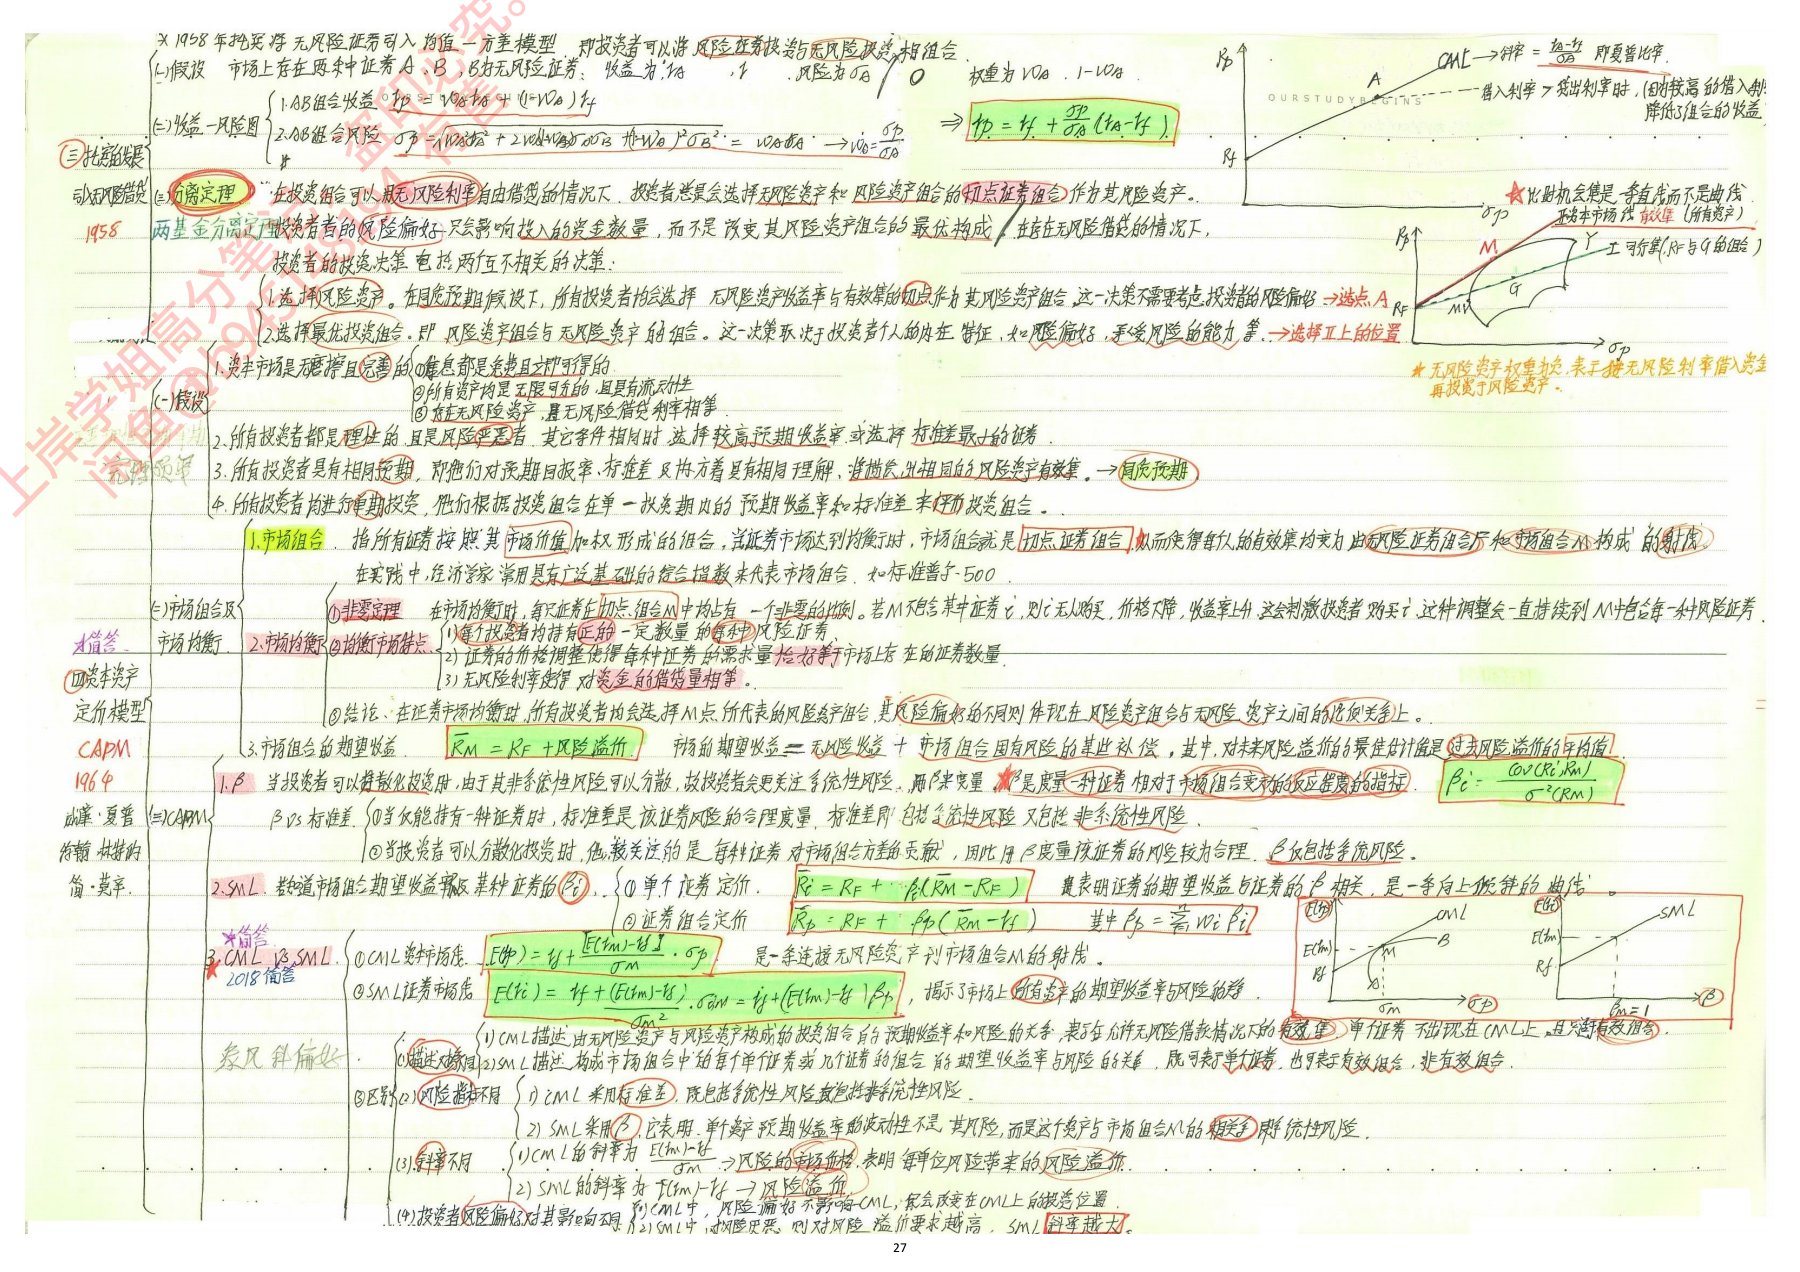 ※ 1958年托宾将无风险证券引入均值—方差模型，即投资者可以将风险证券投资与无风险投资相组合
(一)假设 市场上存在两种中证券A、B，B为无风险证券，收益为rA、rf 风险为σA、0 权重为WA、1-WA
(二)收益—风险图
1.AB组合收益 rp = WArA + (1-WA)rf
2.AB组合风险 = WAσA → WA = σp/σA
⇒ rp = rf + σp/σA (rA-rf)
rp
CML → 斜率 = (rA-rf)/σA 即夏普比率
A
借入利率 > 贷出利率时，(因为较高的借入利
降低了组合的收益
OURSTUDYBEGINS
Rf
σp
三托宾的发展
引入无风险借贷
1958
(三)分离定理 在投资组合可以以无风险利率自由借贷的情况下，投资者总会选择无风险资产和风险资产组合的切点证券组合作为其风险资产。
两基金分离定理 投资者的风险偏好只会影响投入的资金数量，而不是改变其风险资产组合的最优构成，在存在无风险借贷的情况下，
投资者的投资决策包括两个互不相关的决策：
1.选择风险资产。在同质预期假设下，所有投资者均会选择 无风险资产收益率与有效集的切点作为其风险资产组合，这一决策不需要考虑投资者的风险偏好 → 选点A
2.选择最优投资组合。即风险资产组合与无风险资产的组合。这一决策取决于投资者个人的内在特征，如风险偏好，承受风险的能力等。→选择II上的位置
★此时机会集是一条直线而不是曲线
II资本市场线 有效集(所有资产)
Rp
M
Y
I 可行集(RF与G的组合)
G
RF
MV
σp
★无风险资产权重为负，表示按无风险利率借入资金
再投资于风险资产。
(一)假设
1.资本市场是无磨擦且完善的
①信息都是免费且立即可得的
②所有资产均是无限可分的，且具有流动性
③存在无风险资产，且无风险借贷利率相等
2.所有投资者都是理性的且是风险厌恶者，其它条件相同时选择较高预期收益率或选择标准差最小的证券
3.所有投资者具有相同预期，即他们对预期回报率、标准差及协方差具有相同理解，将描绘出相同的风险资产有效集。→同质预期
4.所有投资者均进行单期投资，他们根据投资组合在单一投资期内的预期收益率和标准差来评价投资组合。
1.市场组合 指所有证券按照其市场价值加权形成的组合，当证券市场达到均衡时，市场组合就是切点证券组合，从而使得每个人的有效集均变为由无风险证券组合F和市场组合M构成的射线。
在实践中，经济学家常用具有广泛基础的综合指数来代表市场组合，如标准普尔500
(二)市场组合及
市场均衡
2.市场均衡
①非零定理 在市场均衡时，每只证券在切点组合M中均占有一个非零的比例。若M不包含某中证券i，则i无人购买，价格下降，收益率上升，这会刺激投资者购买i，这种调整会一直持续到M中包含每一种风险证券
②均衡市场特点
1)每个投资者均持有正的一定数量的每种风险证券
2)证券的价格调整使得每种证券的需求量恰好等于市场上存在的证券数量
3)无风险利率使得对资金的借贷量相等。
③结论：在证券市场均衡时，所有投资者均会选择M点所代表的风险资产组合，其风险偏好的不同则体现在风险资产组合与无风险资产之间的比例关系上。
3.市场组合的期望收益 R̄M = RF + 风险溢价 市场的期望收益 = 无风险收益 + 市场组合固有风险的某些补偿，其中，对未来风险溢价的最佳估计值是过去风险溢价的平均值
★简答
四资本资产
定价模型
CAPM
1964
威廉·夏普
约翰·林特纳
简·莫辛
(三)CAPM
1.β 当投资者可以分散化投资时，由于其非系统性风险可以分散，故投资者会更关注系统性风险，用β来度量 ★β是度量一种证券相对于市场组合变动的反应程度的指标 βi = Cov(Ri,Rm)/σ²(RM)
β vs 标准差
①当仅能持有一种证券时，标准差是该证券风险的合理度量，标准差即包括系统性风险又包括非系统性风险
②当投资者可以分散化投资时，他较关注的是每种证券对市场组合方差的贡献，因此用β度量该证券的风险较为合理，β仅包括系统风险。
2.SML 知道市场组合期望收益率及某种证券的βi，
①单个证券定价 R̄i = RF + βi(R̄M-RF)
表明证券的期望收益与证券的β相关，是一条向上倾斜的曲线。
②证券组合定价 R̄p = RF + βp(R̄m-rf) 其中βp = Σ wiβi
★简答
3.CML vs SML
2018简答
①CML资本市场线 E(rp) = rf + [E(rm)-rf]/σM · σp 是一条连接无风险资产到市场组合M的射线。
②SML证券市场线 E(ri) = rf + (E(rm)-rf)/σM² · σiM = rf + (E(rm)-rf)βi，揭示了市场上所有资产的期望收益率与风险的关系
E(r)
CML
B
E(rm)
M
Rf
σm
σp
E(r)
SML
E(rm)
Rf
βm=1
β
③区别
(1)描述对象不同
1)CML描述由无风险资产与风险资产构成的投资组合的预期收益率和风险的关系，表示在允许无风险借款情况下的有效集，单个证券不出现在CML上，且只适于有效组合。
2)SML描述构成市场组合中的每个单个证券或几个证券的组合的期望收益率与风险的关系，既可表示单个证券，也可表示有效组合，非有效组合。
(2)风险指标不同
1)CML采用标准差，既包括系统性风险又包括非系统性风险。
2)SML采用β，它表明单个资产预期收益率的波动性不是其风险，而是这个资产与市场组合M的相关系 即系统性风险。
(3)斜率不同
1)CML的斜率为 (E(rm)-rf)/σm → 风险的市场价格，表明每单位风险带来的风险溢价
2)SML的斜率为 E(rm)-rf → 风险溢价
(4)投资者风险偏好对其影响不同
1)CML中，风险偏好不影响CML，但会改变在CML上的投资位置
2)SML中，风险厌恶，则对风险溢价要求越高，SML斜率越大。
盗印必究。
上岸学姐高分笔记
27